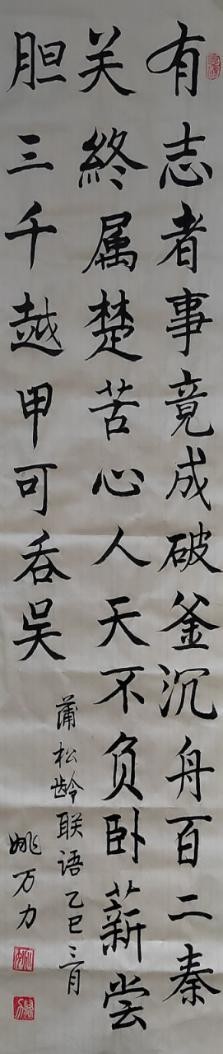 有志者事竟成破釜沉舟百二秦
关终属楚苦心人天不负卧薪尝
胆三千越甲可吞吴
蒲松龄联语乙巳三月
姚万力